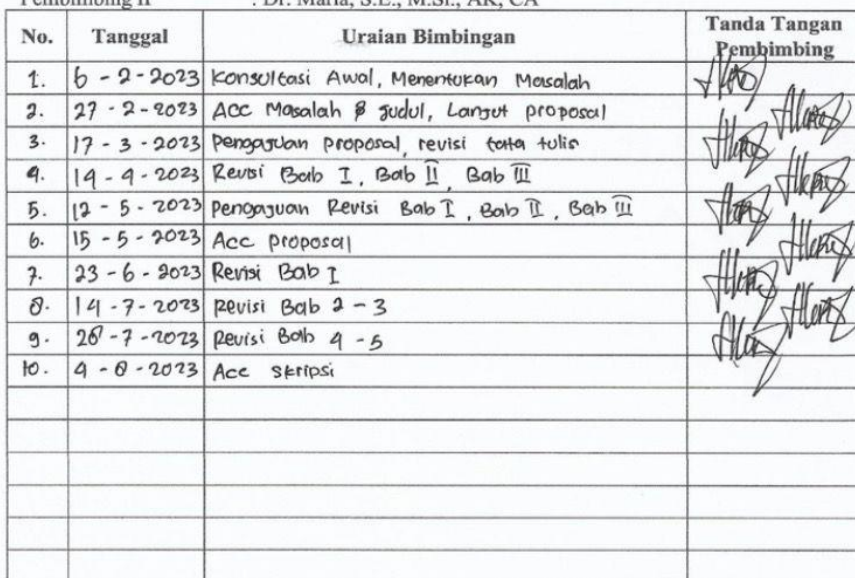 Pembimbing II : Dr. Maria, S.E., M.Si., AK, CA
No. Tanggal Uraian Bimbingan Tanda Tangan Pembimbing
1. 6 - 2 - 2023 Konsultasi Awal, Menentukan Masalah
2. 27 - 2 - 2023 ACC Masalah & Judul, Lanjut proposal
3. 17 - 3 - 2023 Pengajuan proposal, revisi tata tulis
4. 14 - 4 - 2023 Revisi Bab I, Bab II, Bab III
5. 12 - 5 - 2023 Pengajuan Revisi Bab I, Bab II, Bab III
6. 15 - 5 - 2023 Acc proposal
7. 23 - 6 - 2023 Revisi Bab I
8. 14 - 7 - 2023 Revisi Bab 2 - 3
9. 28 - 7 - 2023 Revisi Bab 4 - 5
10. 4 - 8 - 2023 Acc Skripsi